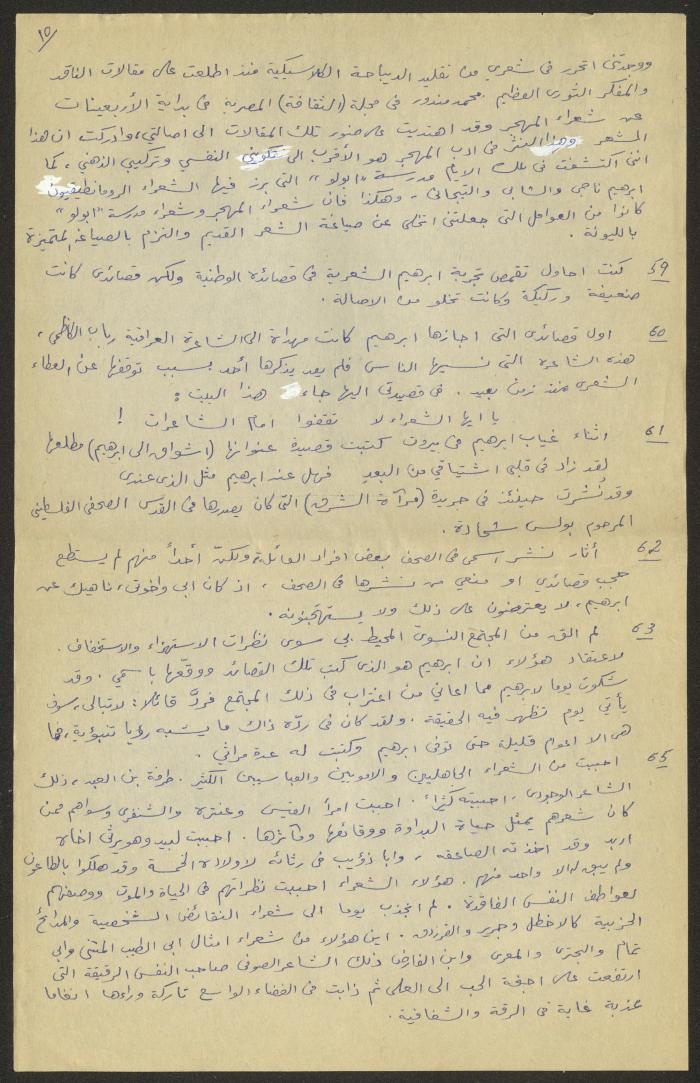 ١٥
ووجدتني اتحرر في شعري من تقليد الديباجة الكلاسيكية منذ اطلعت على مقالات الناقد
والمفكر الثوري العظيم محمد مندور في مجلة (الثقافة) المصرية في بداية الأربعينات
عن شعراء المهجر وقد اهتديت على ضوء تلك المقالات الى اصالتي، وادركت ان هذا
الشعر وهذا النثر في ادب المهجر هو الأقرب الى تكويني النفسي وتركيبي الذهني، كما
انني اكتشفت في تلك الايام مدرسة "ابولو" التي برز فيها الشعراء الرومانطيقيون
ابرهيم ناجي والشابي والتيجاني، وهكذا فان شعراء المهجر وشعراء مدرسة "ابولو"
كانوا من العوامل التي جعلتني اتخلى عن صياغة الشعر القديم والتزم بالصياغة المتميزة
بالليونة.
59 كنت احاول تقمص تجربة ابرهيم الشعرية في قصائده الوطنية ولكن قصائدي كانت
ضعيفة وركيكة وكانت تخلو من الاصالة.
60 اول قصائدي التي اجازها ابرهيم كانت مهداة الى الشاعرة العراقية رباب الكاظمي،
هذه الشاعرة التي نسيها الناس فلم يعد يذكرها أحد بسبب توقفها عن العطاء
الشعري منذ زمن بعيد. في قصيدتي اليها جاء هذا البيت:
يا ايها الشعراء لا تقفوا امام الشاعرات !
61 اثناء غياب ابرهيم في بيروت كتبت قصيدة عنوانها (اشواق الى ابرهيم) مطلعها
لقد زاد في قلبي اشتياقي من البعد فهل عند ابرهيم مثل الذي عندي
وقد نُشرت حينئذ في جريدة (مرآة الشرق) التي كان يصدرها في القدس الصحفي الفلسطيني
المرحوم بولس شحادة.
62 أثار نشر اسمي في الصحف بعض افراد العائلة، ولكنّ أحداً منهم لم يستطع
حجب قصائدي او منعي من نشرها في الصحف، اذ كان ابي واخوتي، ناهيك عن
ابرهيم، لا يعترضون على ذلك ولا يستهجنونه.
63 لم الق من المجتمع النسوي المحيط بي سوى نظرات الاستهزاء والاستخفاف.
لاعتقاد هؤلاء ان ابرهيم هو الذي كتب تلك القصائد ووقّعها باسمي. وقد
شكوت يوما لابرهيم مما اعاني من اغتراب في ذلك المجتمع فردَّ قائلا: لا تبالي، سوف
يأتي يوم تظهر فيه الحقيقة. ولقد كان في ردّه ذاك ما يشبه رؤيا تنبؤية، فما
هي الا اعوام قليلة حتى توفي ابرهيم وكتبت له عدة مراثي.
65 احببت من الشعراء الجاهليين والامويين والعباسيين الكثير. طرفة بن العبد، ذلك
الشاعر الوجودي، احببته كثيراً. احببت امرأ القيس وعنترة والشنفرى وسواهم ممن
كان شعرهم يمثل حياة البداوة ووقائعها ومآثرها. احببت لبيد وهو يرثي اخاه
اربد وقد اخذته الصاعقة، وابا ذؤيب في رثائه لاولاده الخمسة وقد هلكوا بالطاعون
ولم يبق له الا واحد منهم. هؤلاء الشعراء احببت نظراتهم في الحياة والموت ووصفهم
لعواطف النفس الفاقدة. لم انجذب يوما الى شعراء النقائض الشخصية والمدائح
الحزبية كالاخطل وجرير والفرزدق. اين هؤلاء من شعراء امثال ابي الطيب المتنبي وابي
تمام والبحتري والمعري وابن الفارض ذلك الشاعر الصوفي صاحب النفس الرقيقة التي
ارتفعت على اجنحة الحب الى العلى ثم ذابت في الفضاء الواسع تاركة وراءها انغاما
عذبة غاية في الرقة والشفافية.